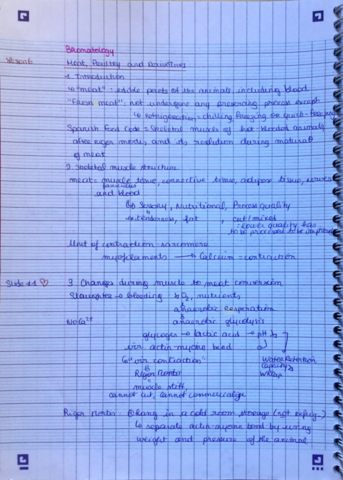 Bromatology
Lesson 6 Meat, Poultry and Derivatives
1 Introduction
"meat" = edible parts of the animals including blood
"Fresh meat": not undergone any preserving process except
↳ refrigeration, chilling freezing or quick-freezing
Spanish Food Code = Skeletal muscle of hot blooded animals
after rigor mortis, and its resolution during
of meat
2 Skeletal muscle structure
meat = muscle tissue, connective tissue, adipose tissue, nerves
and blood
Sensory, Nutritional, Process quality
tenderness, fat, cut/mixed
lower quality has
to be processed to be
Unit of contraction sarcomere
myofilaments → Calcium = contraction
Slide 11 ♡ 3 Changes during muscle to meat conversion
Slaughter → bleeding ↓O2, nutrients
anaerobic respiration
No Ca2+ anaerobic glycolysis
glycogen → lactic acid → pH
actin-myosin bond
contraction" Water Retention
Rigor Mortis Capacity
muscle stiff,
cannot cut, cannot commercialize
Rigor Mortis: Hang in a cold room storage (not
↳ to separate actin-myosin bond by using
weight and pressure of the animal